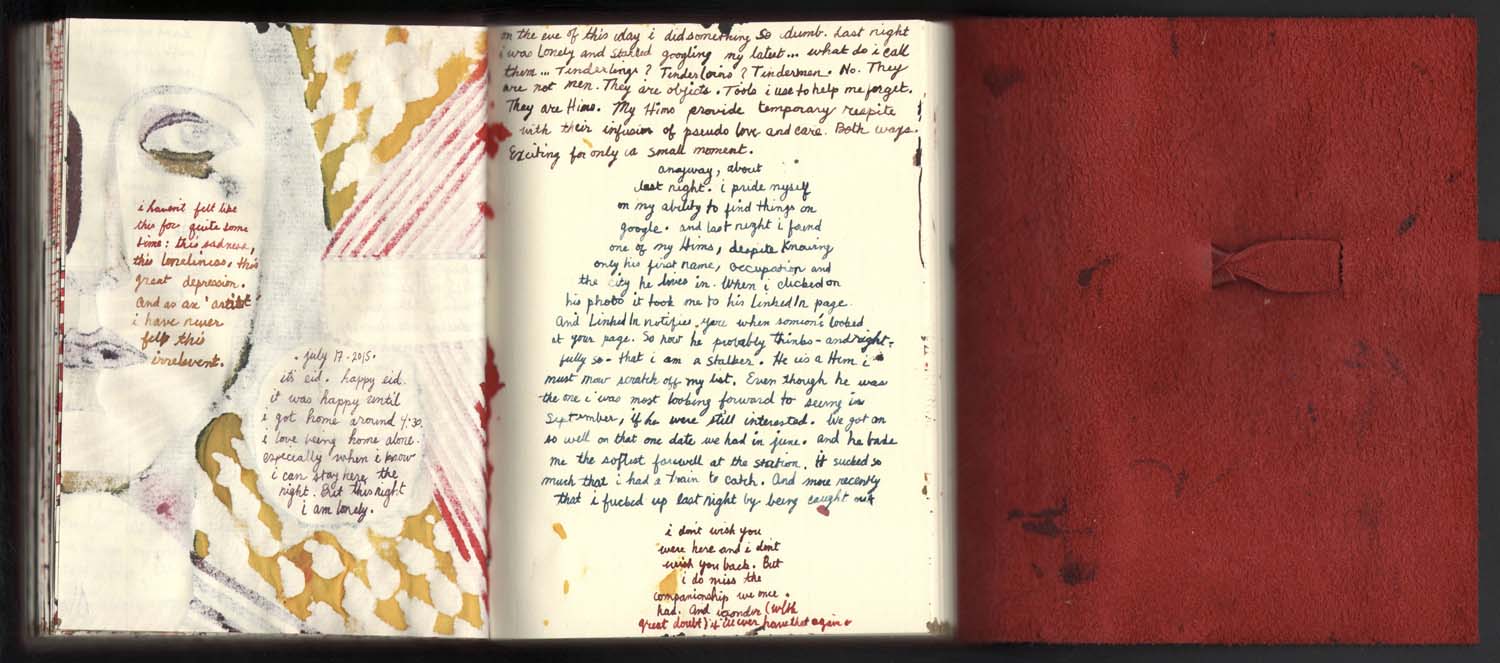 i haven't felt like
this for quite some
time: this sadness,
this loneliness, this
great depression.
And as an 'artist'
i have never
felt this
irrelevant.
. july 17. 2015.
it's eid. happy eid.
it was happy until
i got home around 4:30.
i love being home alone.
especially when i know
i can stay here the
night. But this night
i am lonely.
on the eve of this day i did something so dumb. Last night
i was lonely and started googling my latest... what do i call
them... Tinderlings? Tinderloins? Tindermen. No. They
are not men. They are objects. Tools i use to help me forget.
They are Hims. My Hims provide temporary respite
with their infusion of pseudo love and care. Both ways.
Exciting for only a small moment.
anyway, about
last night. i pride myself
on my ability to find things on
google. and last night i found
one of my Hims, despite knowing
only his first name, occupation and
the city he lives in. When i clicked on
his photo it took me to his LinkedIn page.
And LinkedIn notifies you when someone looked
at your page. So now he probably thinks - and right-
fully so - that i am a stalker. He is a Him i
must now scratch off my list. Even though he was
the one i was most looking forward to seeing in
September, if he were still interested. We got on
so well on that one date we had in june. and he bade
me the softest farewell at the station. it sucked so
much that i had a train to catch. And more recently
that i fucked up last night by being caught out
i don't wish you
were here and i don't
wish you back. But
i do miss the
companionship we once
had. And i wonder (with
great doubt) if i'll ever have that again.